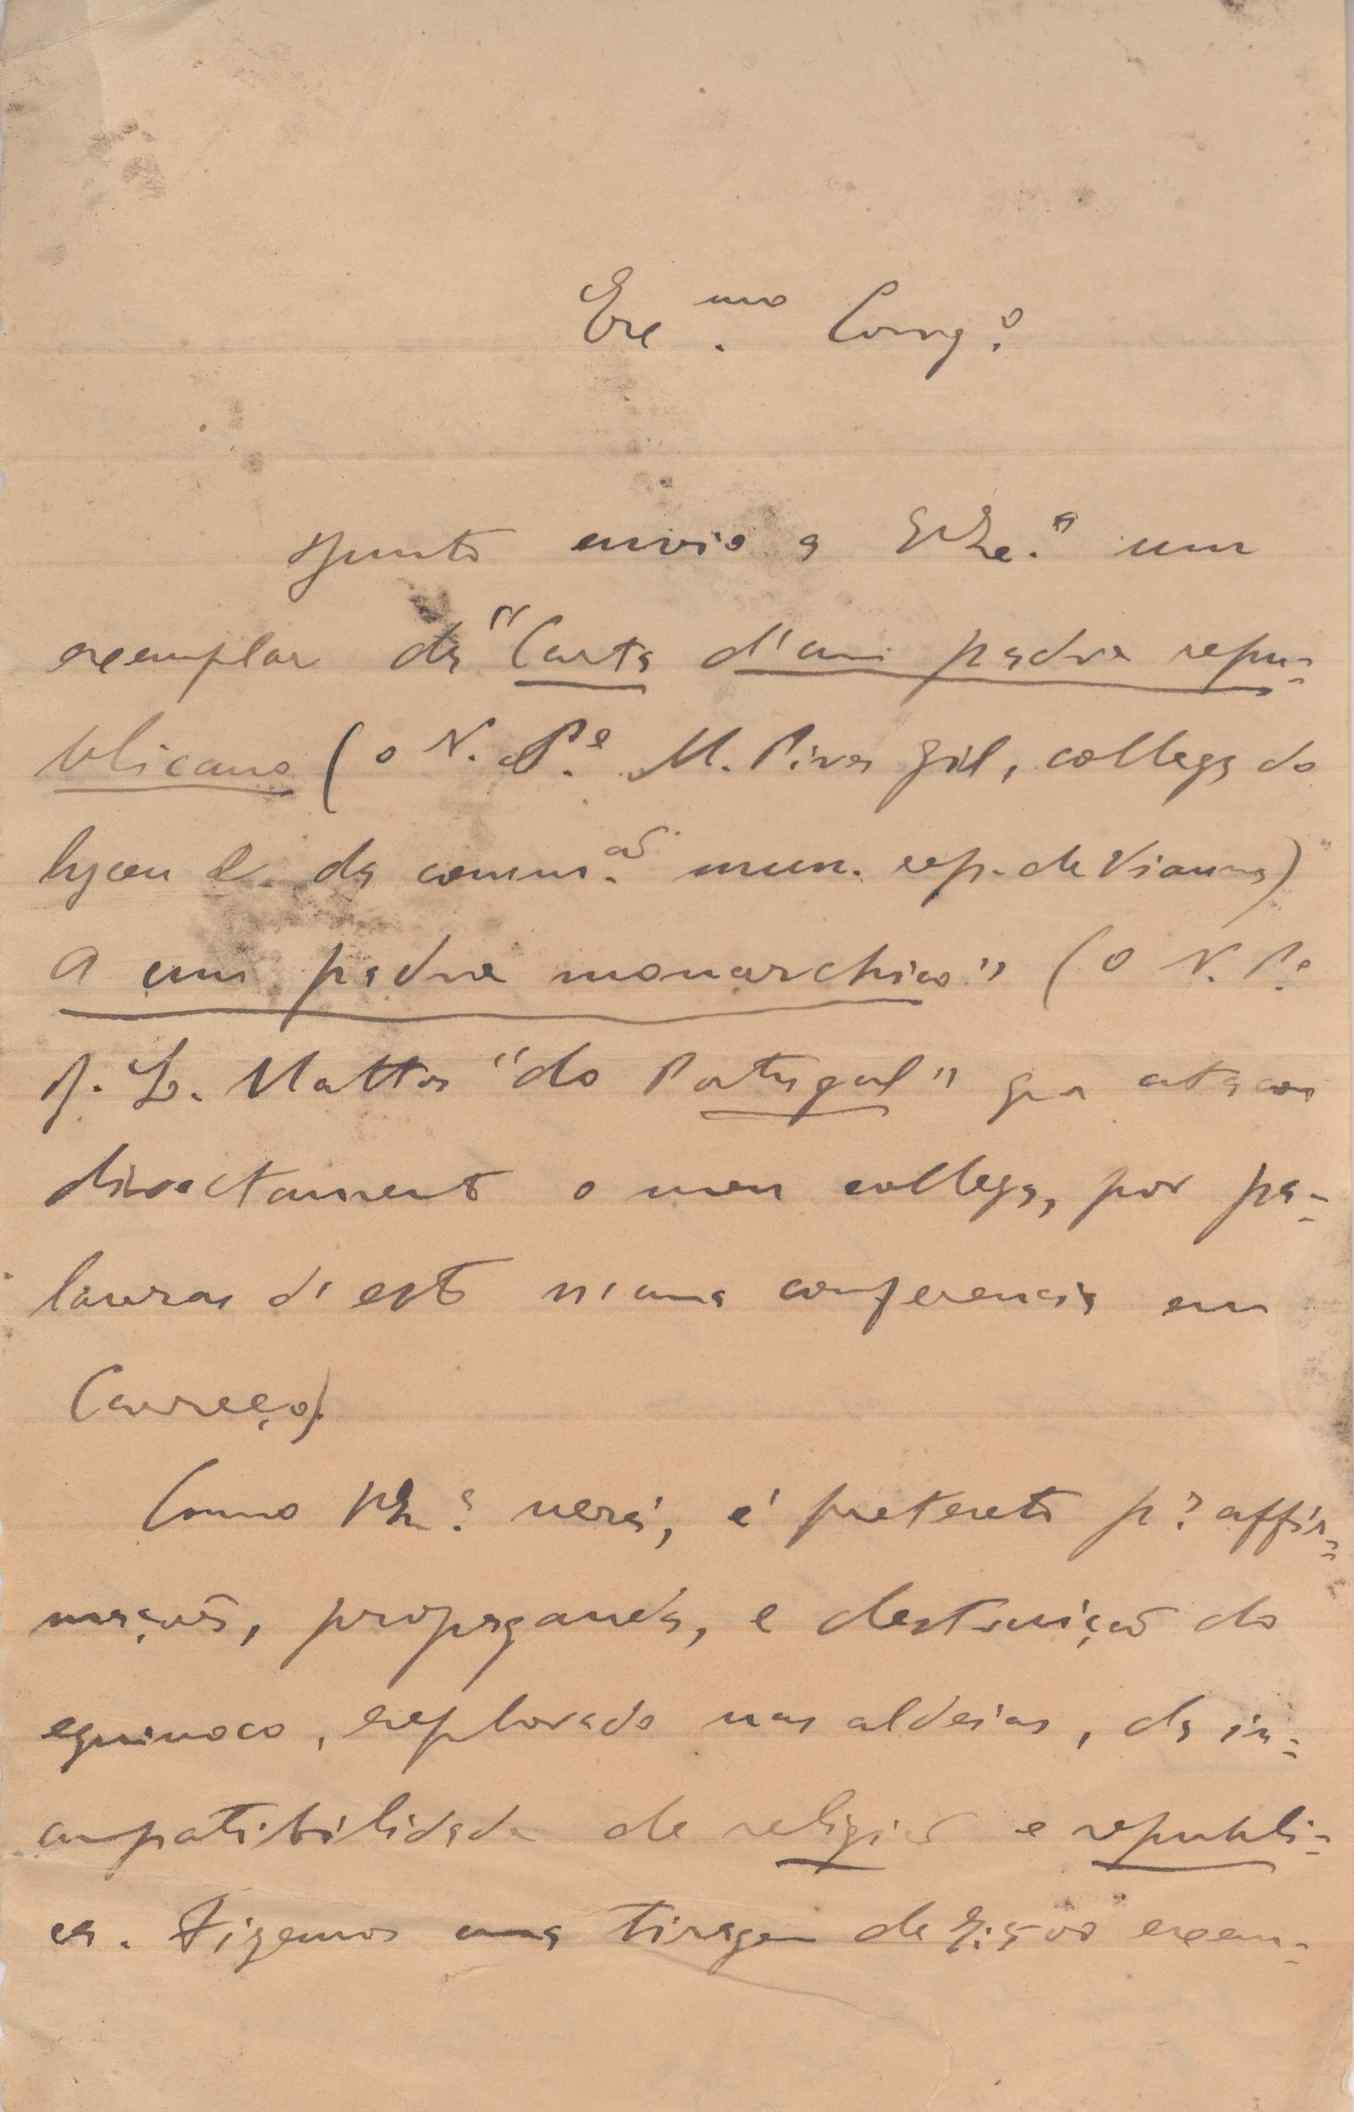 Exc.mo Corrg.o
Junto envio a V.Exc.a um
exemplar da "Carta d'um padre repu-
blicano (o N. P.e M. Pires Gil, collega do
lyceu e da comm.ão mun. rep. de Vianna)
a um padre monarchico" (o N. P.e
J. L. Mattos "do Portugal" que atacou
directamente o meu collega, por pa-
lavras d'este n'uma conferencia em
Carreço).
Como V.Ex.a verá, é pretexto p.a affir-
mações, propaganda, e destruição do
equivoco, explorado nas aldeias, da in-
compatibilidade de religião e republi-
ca. Fizemos uma tiragem de exem-